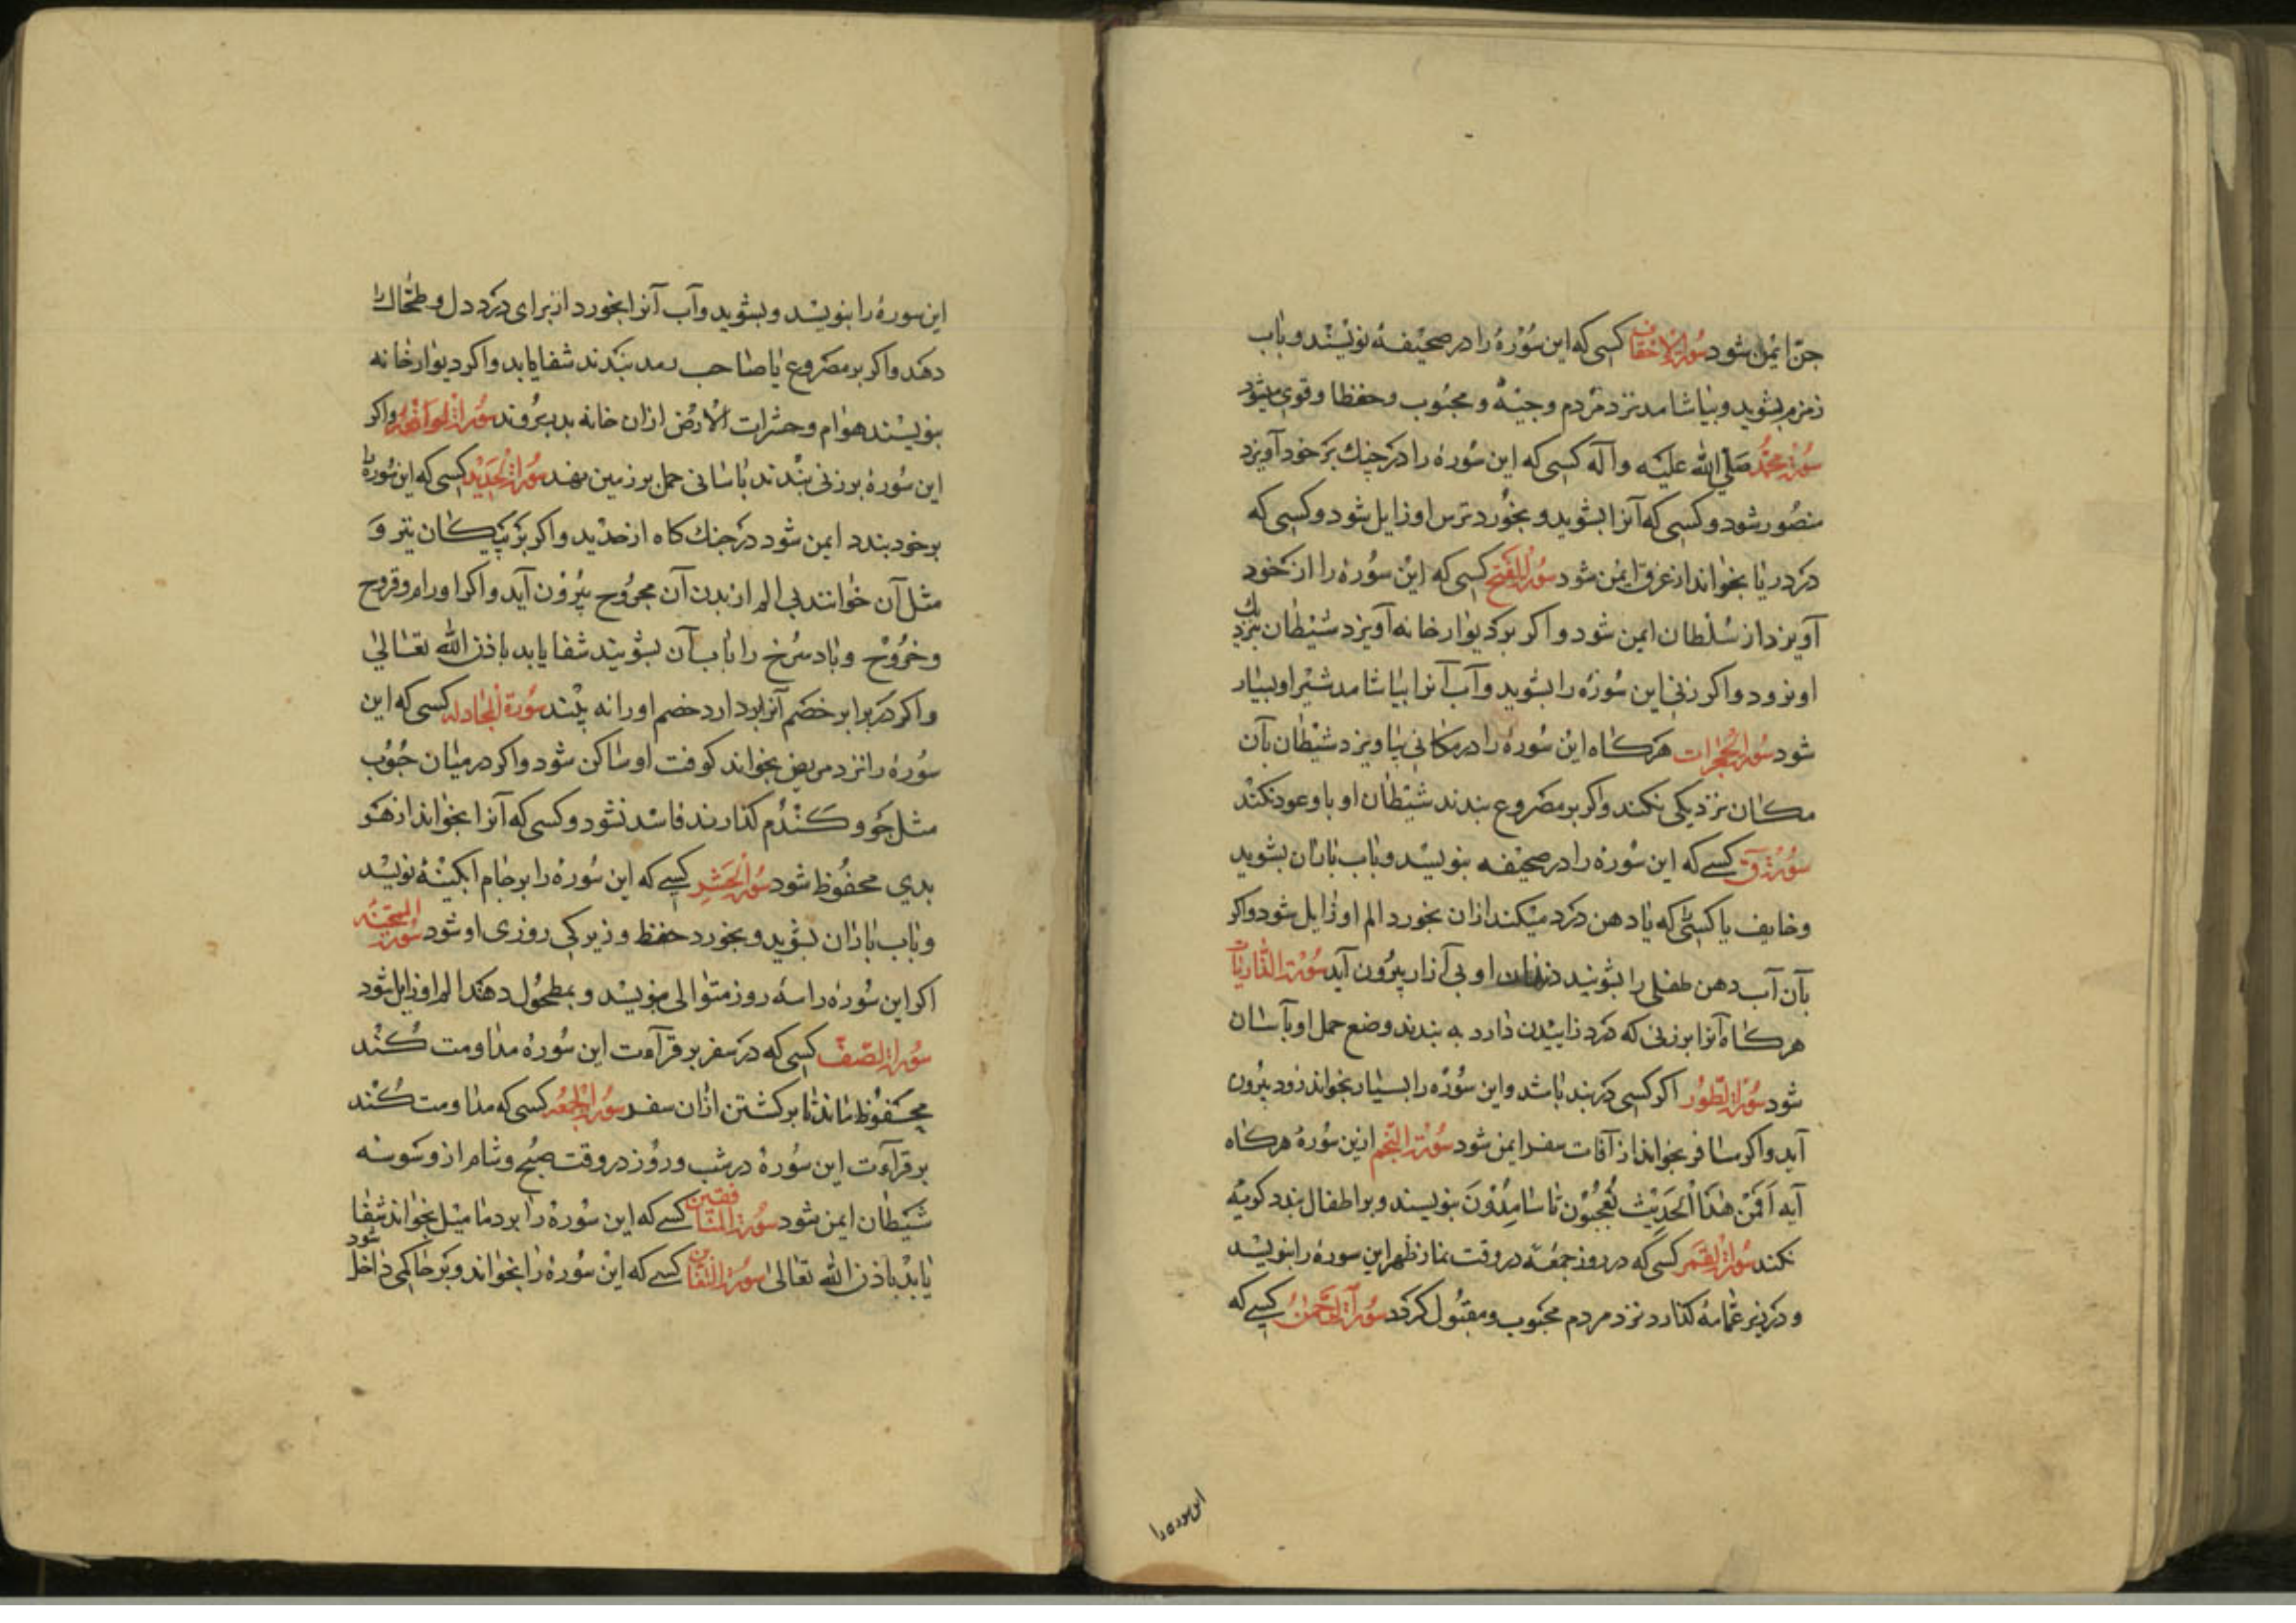 جن ایمن شود سورة الاحقاف کسی که این سوره را در صحیفه نویسند و باب
زمزم بشوید و بیاشامد نزد مردم وجیه و محبوب و حفظا و قوی میشود
سورة محمد صلی الله علیه وآله کسی که این سوره را در جنك بر خود آویزد
منصور شود و کسی که آنرا بشوید و بخورد ترس او زایل شود و کسی که
در دریا بخواند از غرق ایمن شود سورة الفتح کسی که این سوره را از خود
آویزد از سلطان ایمن شود و اکر بر دیوار خانه آویزد شیطان نزدیك
او نرود و اکر زنی این سوره را بشوید و آب آنرا بیاشامد شیر او بسیار
شود سورة الحجرات هرکاه این سوره را در مکانی بیاویزد شیطان بآن
مکان نزدیکی نکند و اکر بر مصروع بندند شیطان او باو عود نکند
سورة ق کسی که این سوره را در صحیفه بنویسد و باب باران بشوید
و خایف یا کسی که یا دهن درد میکند ازان بخورد الم او زایل شود و اکر
بآن آب دهن طفلی را بشویند دندان او بی آزار بیرون آید سورة الذاریات
هرکاه آنرا بر زنی که درد زاییدن دارد به بندند وضع حمل او بآسان
شود سورة الطور اکر کسی در بند باشد و این سوره را بسیار بخواند زود بیرون
آید و اکر مسافر بخواند از آفات سفر ایمن شود سورة النجم ازین سوره هرکاه
آیه اَفَمِنْ هٰذَا الْحَدِیْثِ تَعْجَبُوْنَ تا سَامِدُوْنَ بنویسند و بر اطفال بندد کریه
نکند سورة القمر کسی که در روز جمعه در وقت نماز ظهر این سوره را بنویسد
و در زیر عمامه کذارد نزد مردم محبوب و مقبول کردد سورة الرحمن کسی که
این سوره را
این سوره را بنویسد و بشوید و آب آنرا بخورد از برای درد دل و طحال را
دهد و اکر بر مصروع یا صاحب رمد بندند شفا یابد و اکر دیوار خانه
بنویسند هوام و حشرات الارض ازان خانه بدر روند سورة الواقعه و اکر
این سوره بر زنی بندند باسانی حمل بر زمین نهد سورة الحدید کسی که این سوره را
بر خود بندد ایمن شود در جنك کاه از حدید و اکر بر پیکان تیر و
مثل آن خوانند بی الم از بدن آن مجروح بیرون آید و اکر اورام و قروح
و خروج و باد سرخ را باب آن بشویند شفا یابد باذن الله تعالی
و اکر در برابر خصم آنرا بردارد خصم او را نه بیند سورة المجادله کسی که این
سوره را نزد مریض بخواند کوفت او ساکن شود و اکر در میان حبوب
مثل جو و کندم کذارند فاسد نشود و کسی که آنرا بخواند از هر
بدی محفوظ شود سورة الحشر کسی که این سوره را بر جام ابکینه نویسد
و باب باران بشوید و بخورد حفظ و زیرکی روزی او شود سورة الممتحنه
اکر این سوره را سه روز متوالی بنویسد و بمطحول دهند الم او زایل شود
سورة الصف کسی که در سفر بر قرآءت این سوره مداومت کند
محفوظ ماند تا برکشتن ازان سفر سورة الجمعه کسی که مداومت کند
بر قرآءت این سوره در شب و روز در وقت صبح و شام از وسوسه
شیطان ایمن شود سورة المنافقین کسی که این سوره را بر دمامیل بخواند شفا
یابد باذن الله تعالی سورة التغابن کسی که این سوره را بخواند و بر حاکمی داخل شود